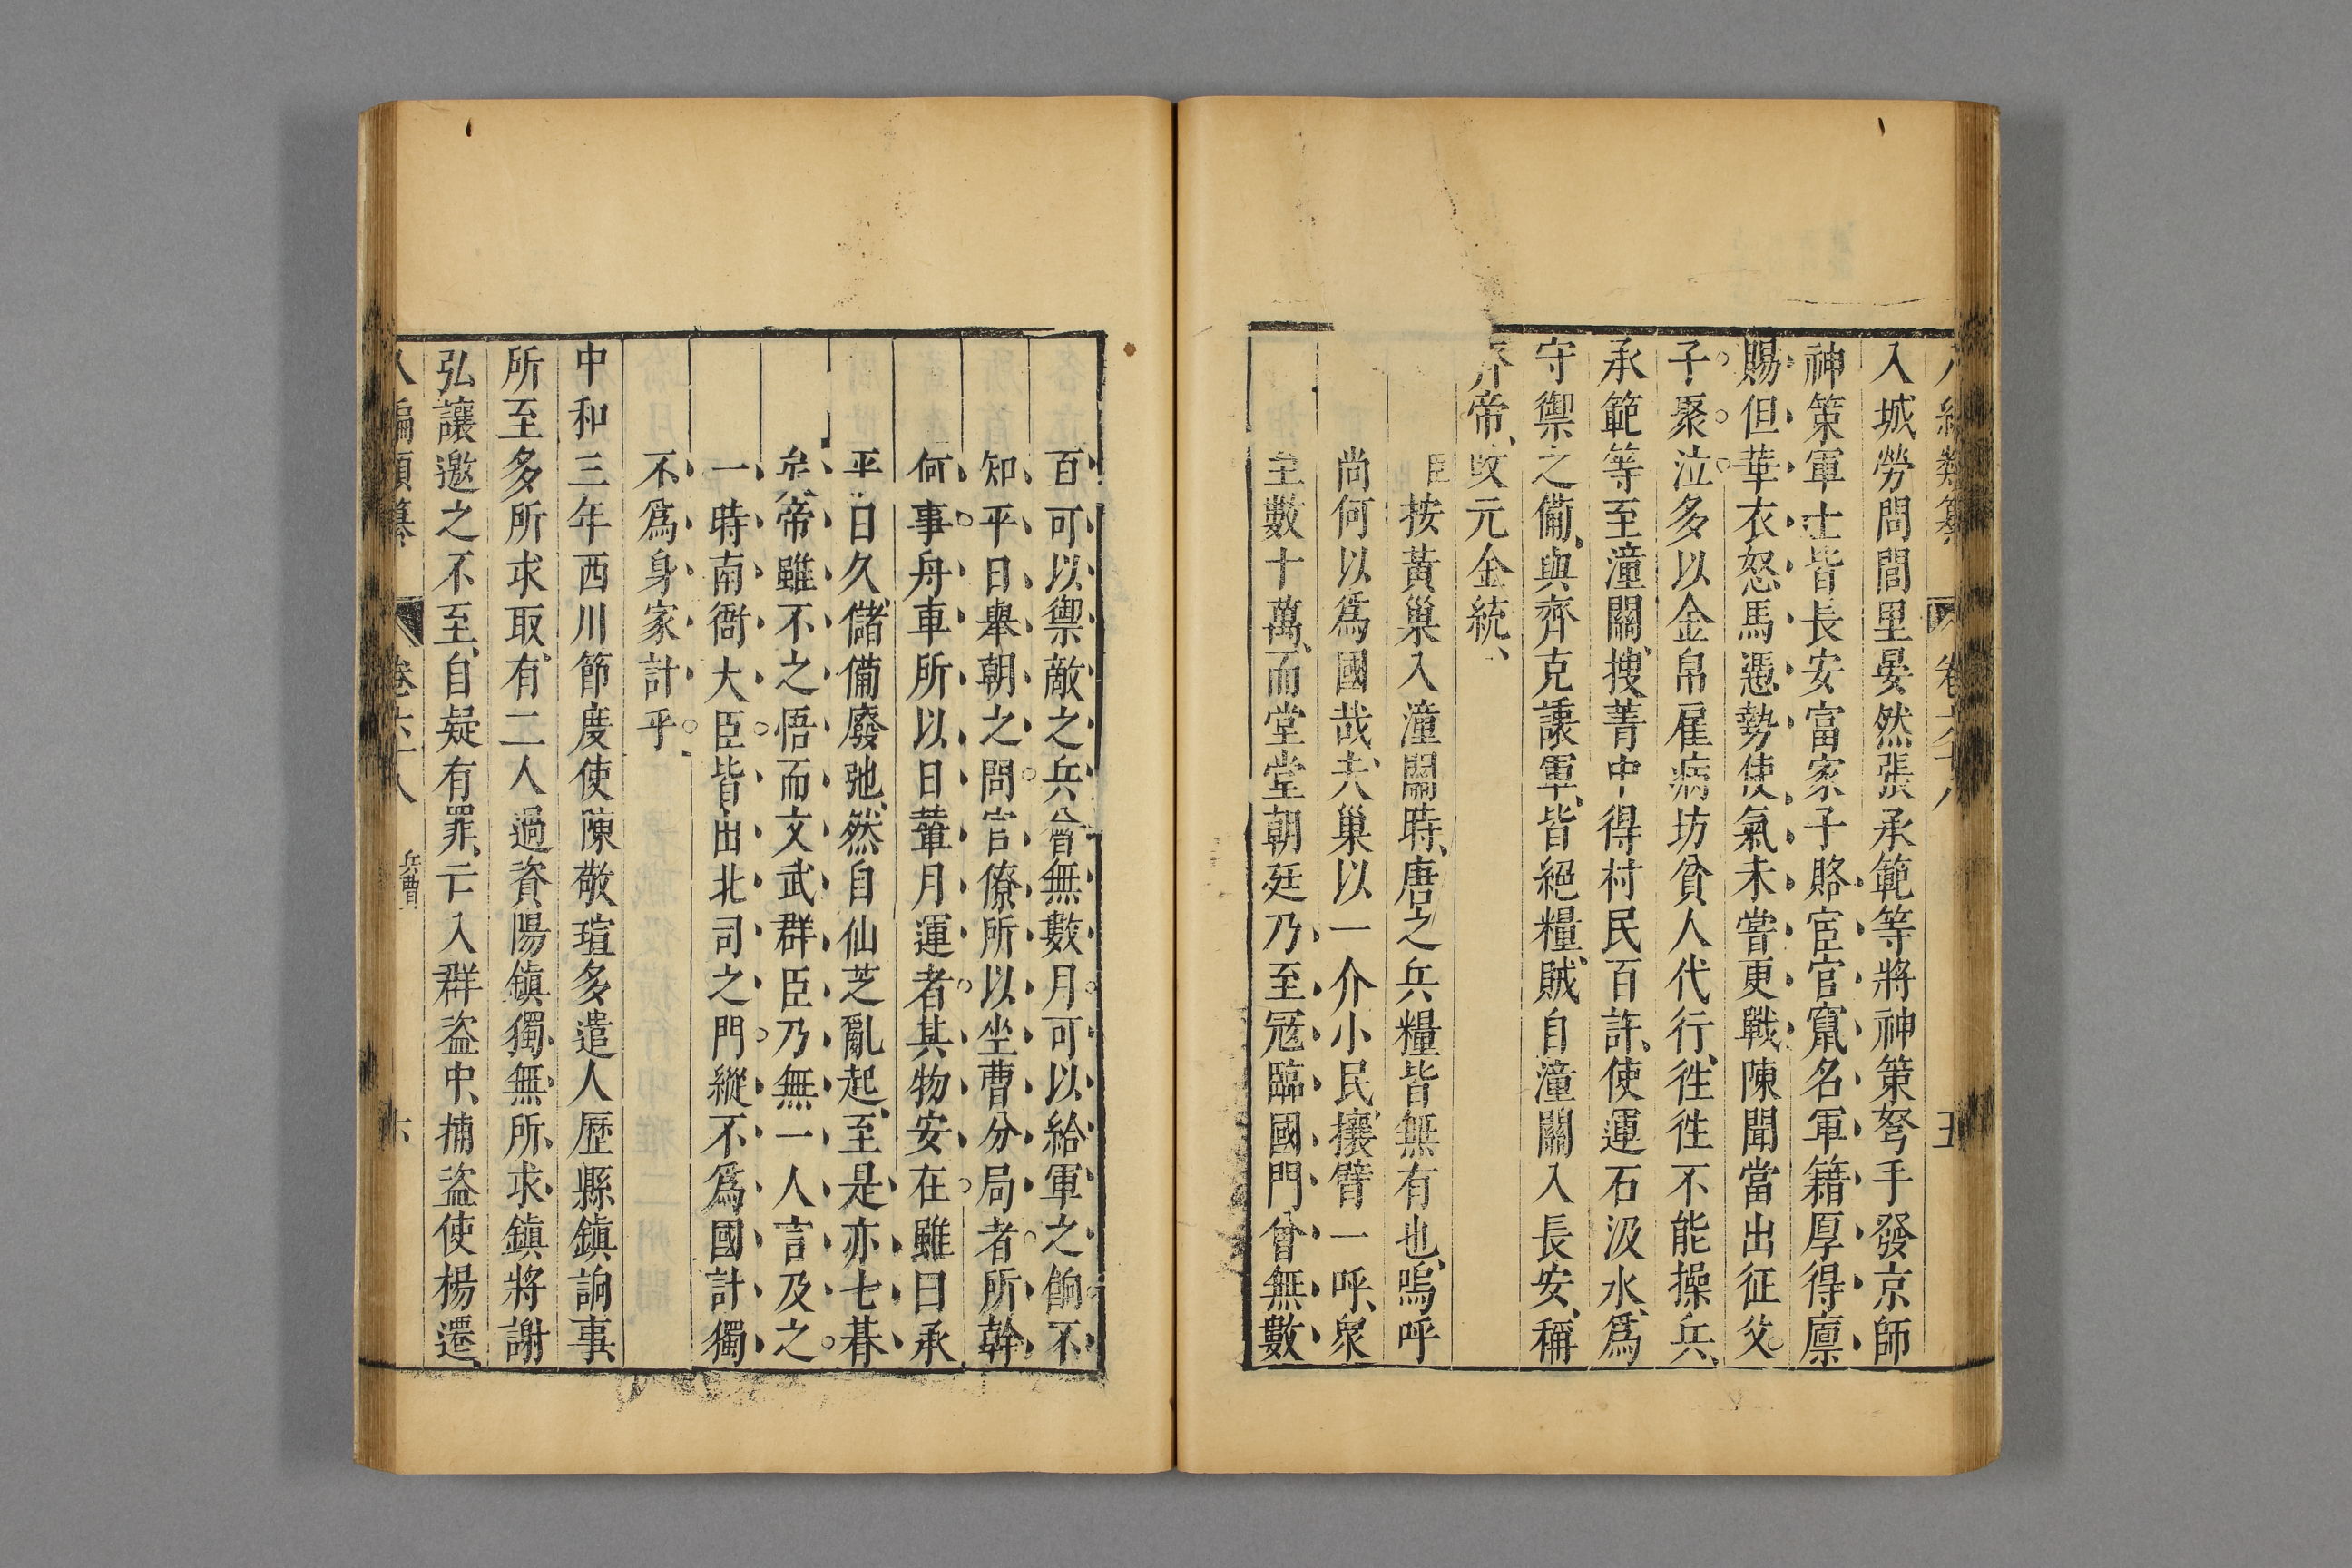 入城勞問閭里晏然張承範等將神策弩手發京師
神策軍士皆長安富家子賂宦官竄名軍籍厚得廪
賜但華衣怒馬憑勢使氣未嘗更戰陳聞當出征父
子聚泣多以金帛雇病坊貧人代行徃徃不能操兵
承範等至潼關搜菁中得村民百許使運石汲水爲
守禦之備與齊克讓軍皆絕糧賊自潼關入長安稱
齊帝改元金統
臣按黃巢入潼關時唐之兵糧皆無有也嗚呼
尚何以爲國哉夫巢以一介小民攘臂一呼衆
至數十萬而堂堂朝廷乃至冦臨國門曾無數
百可以禦敵之兵曾無數月可以給軍之餉不
知平日舉朝之間官僚所以坐曹分局者所幹
何事舟車所以日輦月運者其物安在雖曰承
平日久儲備廢弛然自仙芝亂起至是亦七朞
矣帝雖不之悟而文武群臣乃無一人言及之
一時南衙大臣皆由北司之門縱不爲國計獨
不爲身家計乎
中和三年西川節度使陳敬瑄多遣人歷縣鎮詗事
所至多所求取有二人過資陽鎮獨無所求鎮將謝
弘讓邀之不至自疑有罪亡入群盜中捕盜使楊遷
八編類纂 卷六十八 兵曹 六